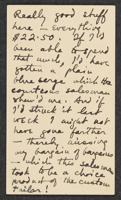 Really good stuff
here — Everything
$22.50. If I'd
been able to spend
that much, I'd have
gotten a plain
blue serge which the
countess salesman
show'd me. And if
I'd struck it last
week I might not
have gone farther
— thereby missing
my bargain of bargains
— which this salesman
took to be a choice
product of the custom
tailor!